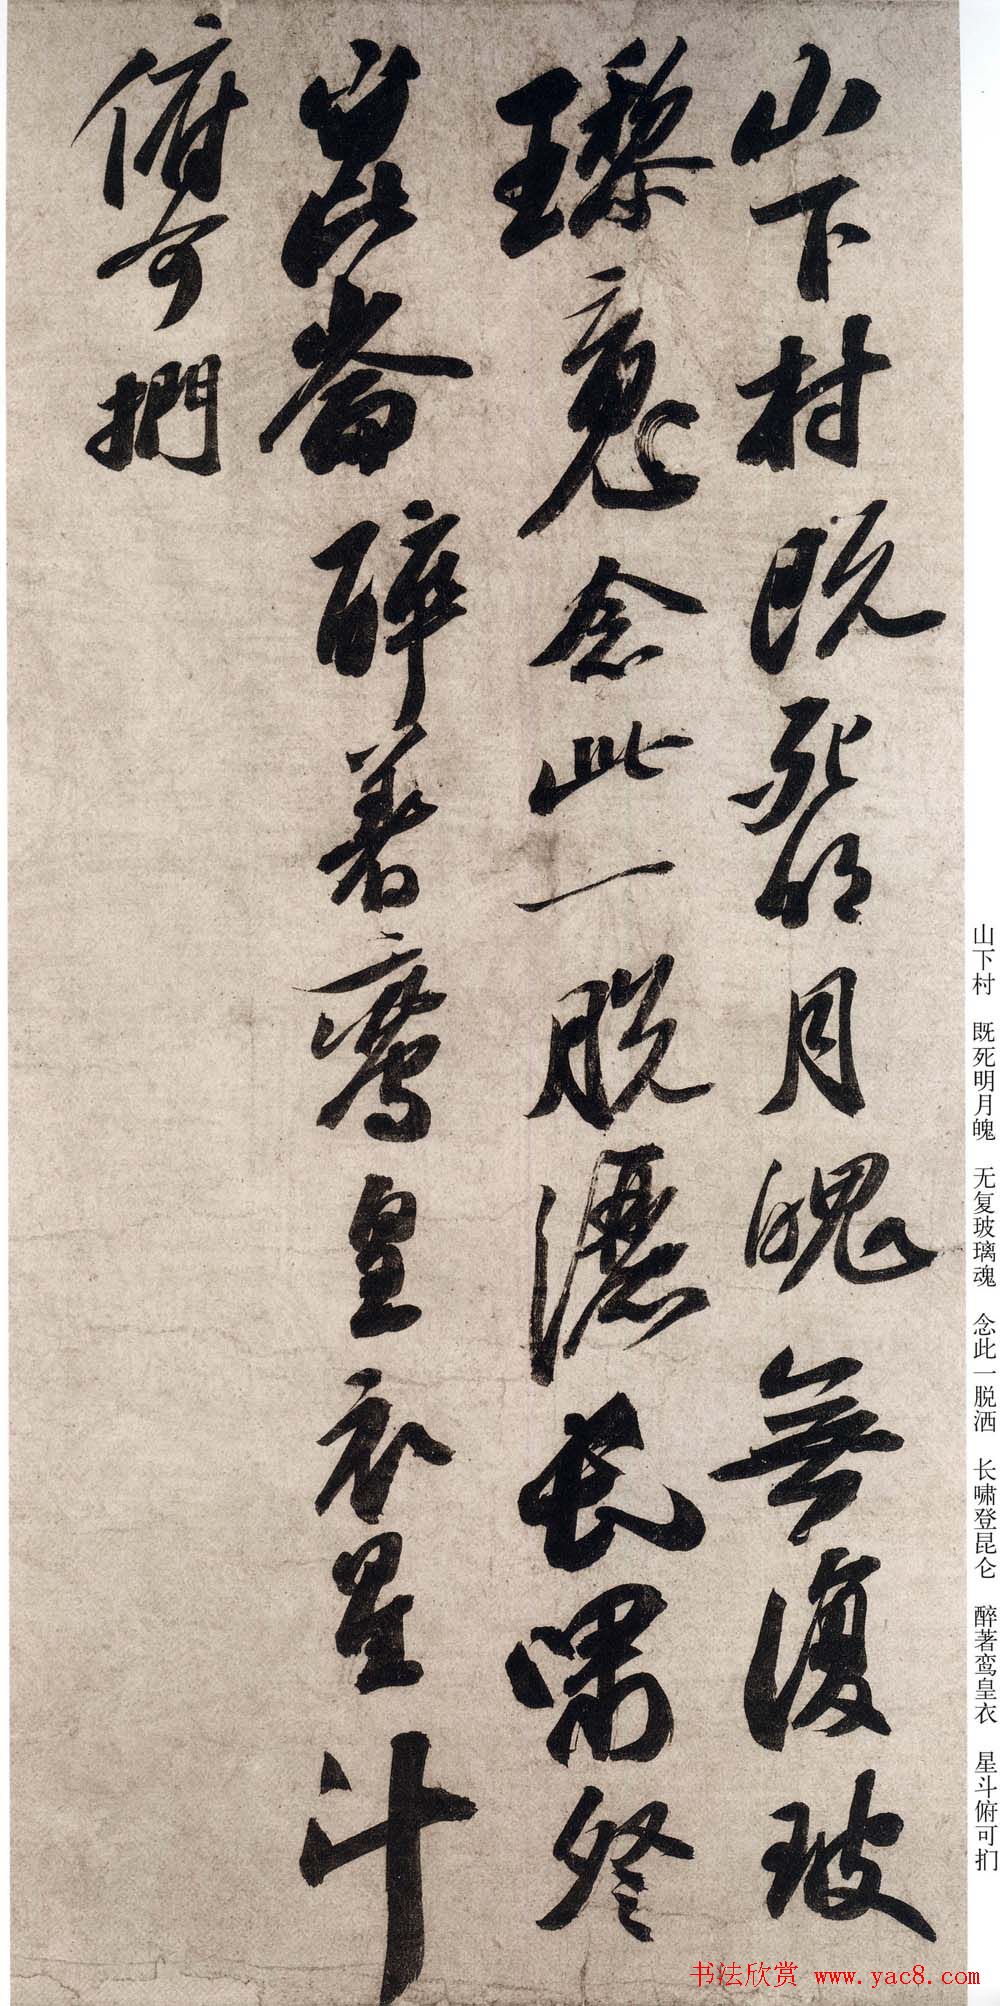 山下村既死明月魄無復玻
瓈魂念此一脱灑長嘯登
崑崙醉著鸞皇衣星斗
俯可捫
山下村 既死明月魄 无复玻璃魂 念此一脱洒 长啸登昆仑 醉著鸾皇衣 星斗俯可扪
书法欣赏 www.yac8.com